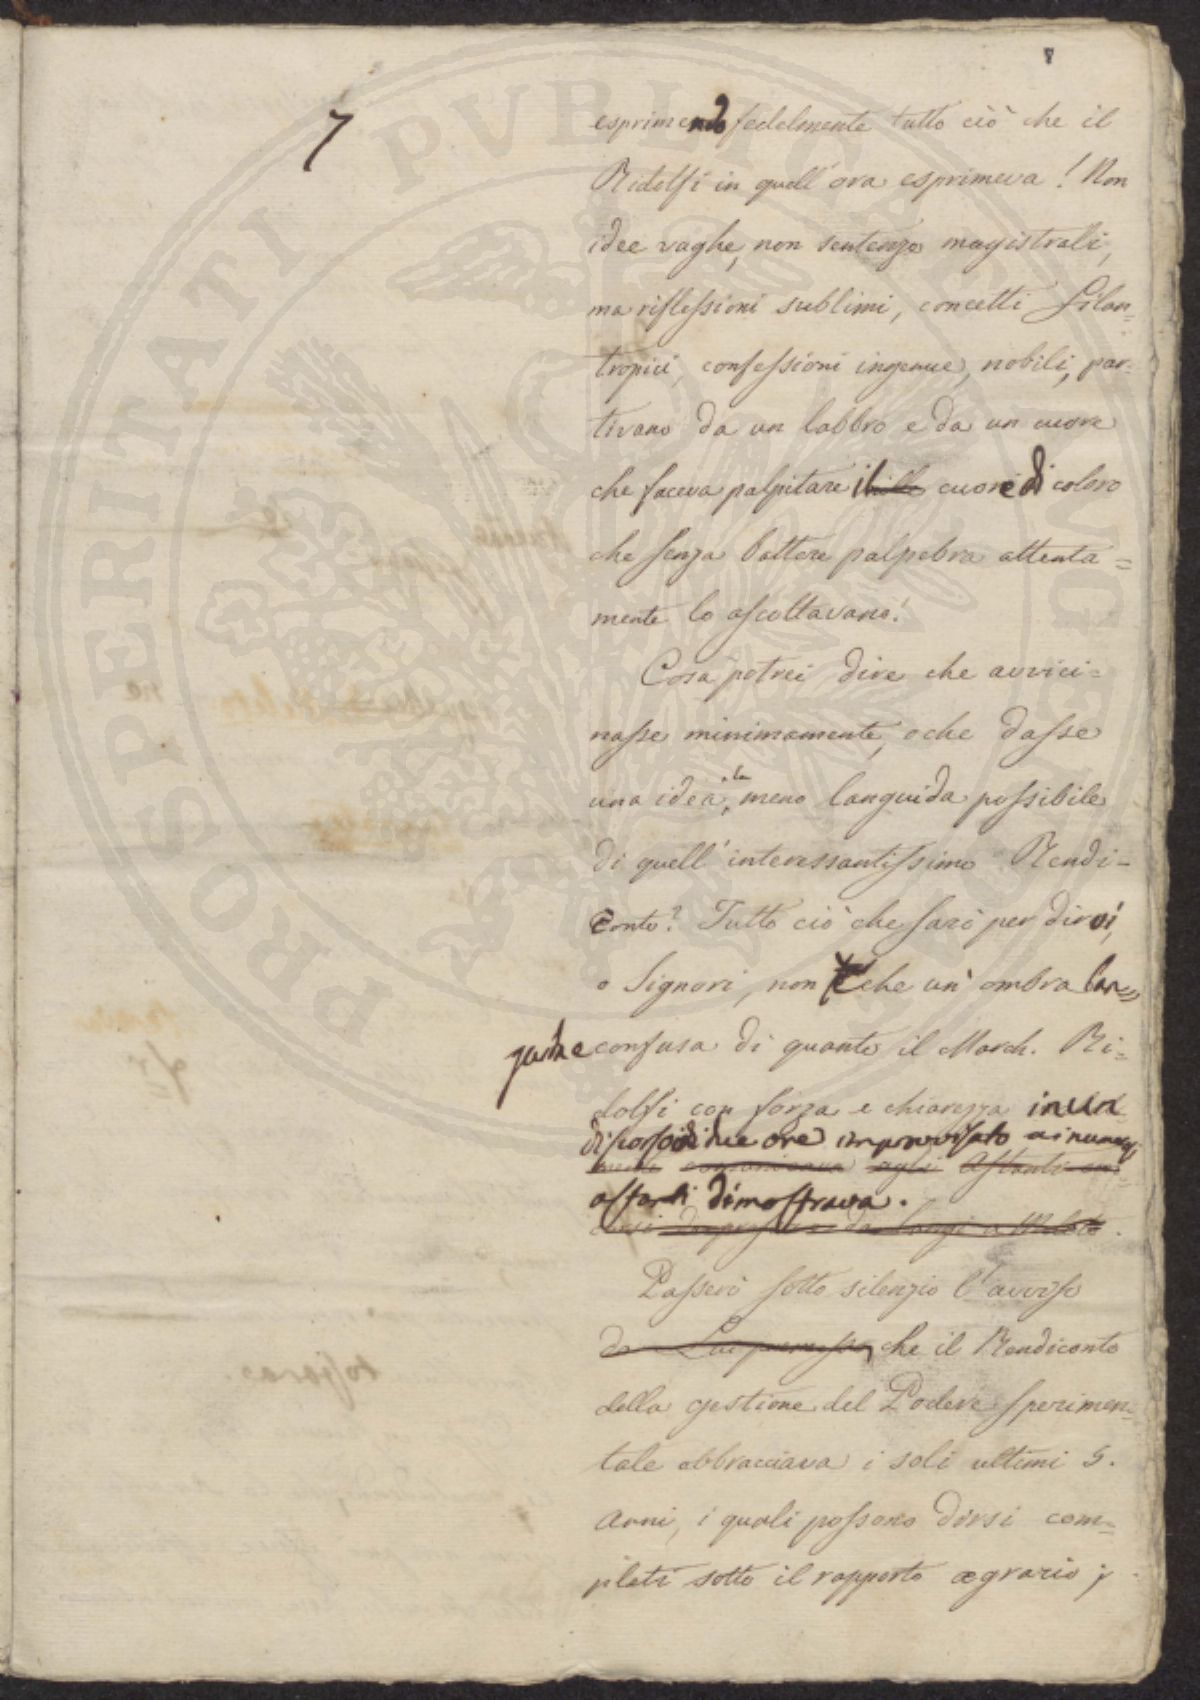 7
esprimendo fedelmente tutto ciò che il
Ridolfi in quell'ora esprimeva! Non
idee vaghe, non sentenze magistrali,
ma riflessioni sublimi, concetti filan=
tropici, confessioni ingenue, nobili, par=
tivano da un labbro e da un cuore
che faceva palpitare il cuore di coloro
che senza battere palpebra attenta=
mente lo ascoltavano!
Cosa potrei dire che avvici=
nasse minimamente, o che dasse
una idea, la meno languida possibile
di quell'interessantissimo Rendi=
conto? Tutto ciò che sarò per dirvi,
o Signori, non è che un'ombra lan=
guida e confusa di quanto il March. Ri=
dolfi con forza e chiarezza in un
discorso di due ore improvvisato ai numer
astanti dimostrava.
Passerò sotto silenzio l'avviso
da Lui premesso, che il Rendiconto
della gestione del Podere sperimen=
tale abbracciava i soli ultimi 5.
Anni, i quali possono dirsi com=
pleti sotto il rapporto agrario;
PROSPERITATI PVBLICAE